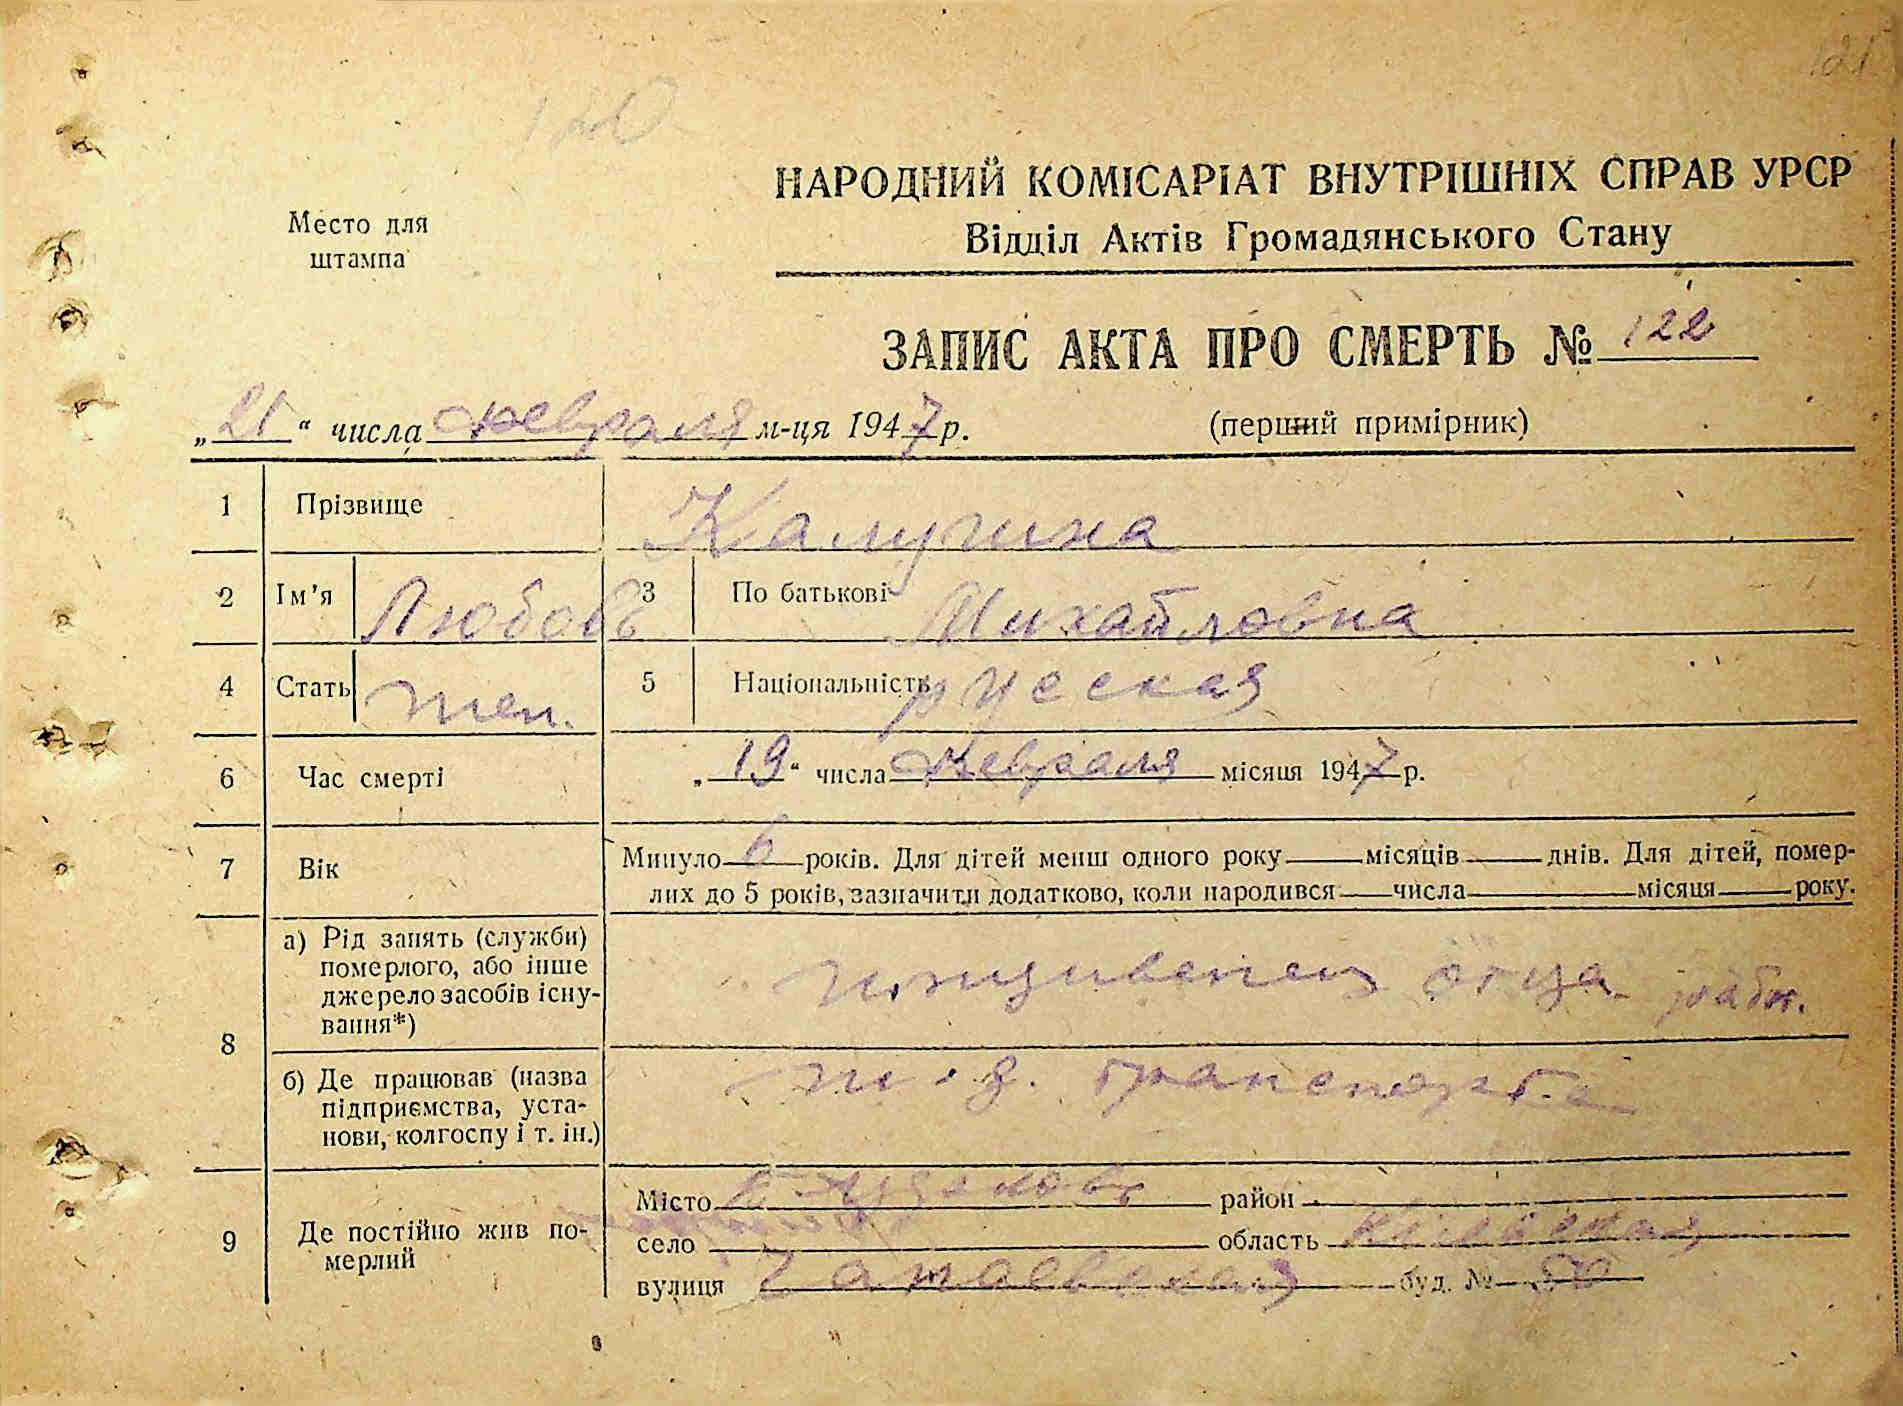 121
120
Место для
штампа
НАРОДНИЙ КОМІСАРІАТ ВНУТРІШНІХ СПРАВ УРСР
Відділ Актів Громадянського Стану
ЗАПИС АКТА ПРО СМЕРТЬ № 122
„21“ числа февраля м-ця 1947 р. (перший примірник)
1 Прізвище Калугина
2 Ім'я Любовь 3 По батькові Михайловна
4 Стать жен. 5 Національність русская
6 Час смерті „19“ числа февраля місяця 1947 р.
7 Вік Минуло 6 років. Для дітей менш одного року місяців днів. Для дітей, помер-
лих до 5 років, зазначити додатково, коли народився числа місяця року.
8 а) Рід занять (служби)
померлого, або інше
джерело засобів існу-
вання*) иждивенец отца рабоч.
б) Де працював (назва
підприємства, уста-
нови, колгоспу і т. ін.) ж.д. транспорта
9 Де постійно жив по-
мерлий
Місто район
село область
вулиця Чапаевская буд. № 50